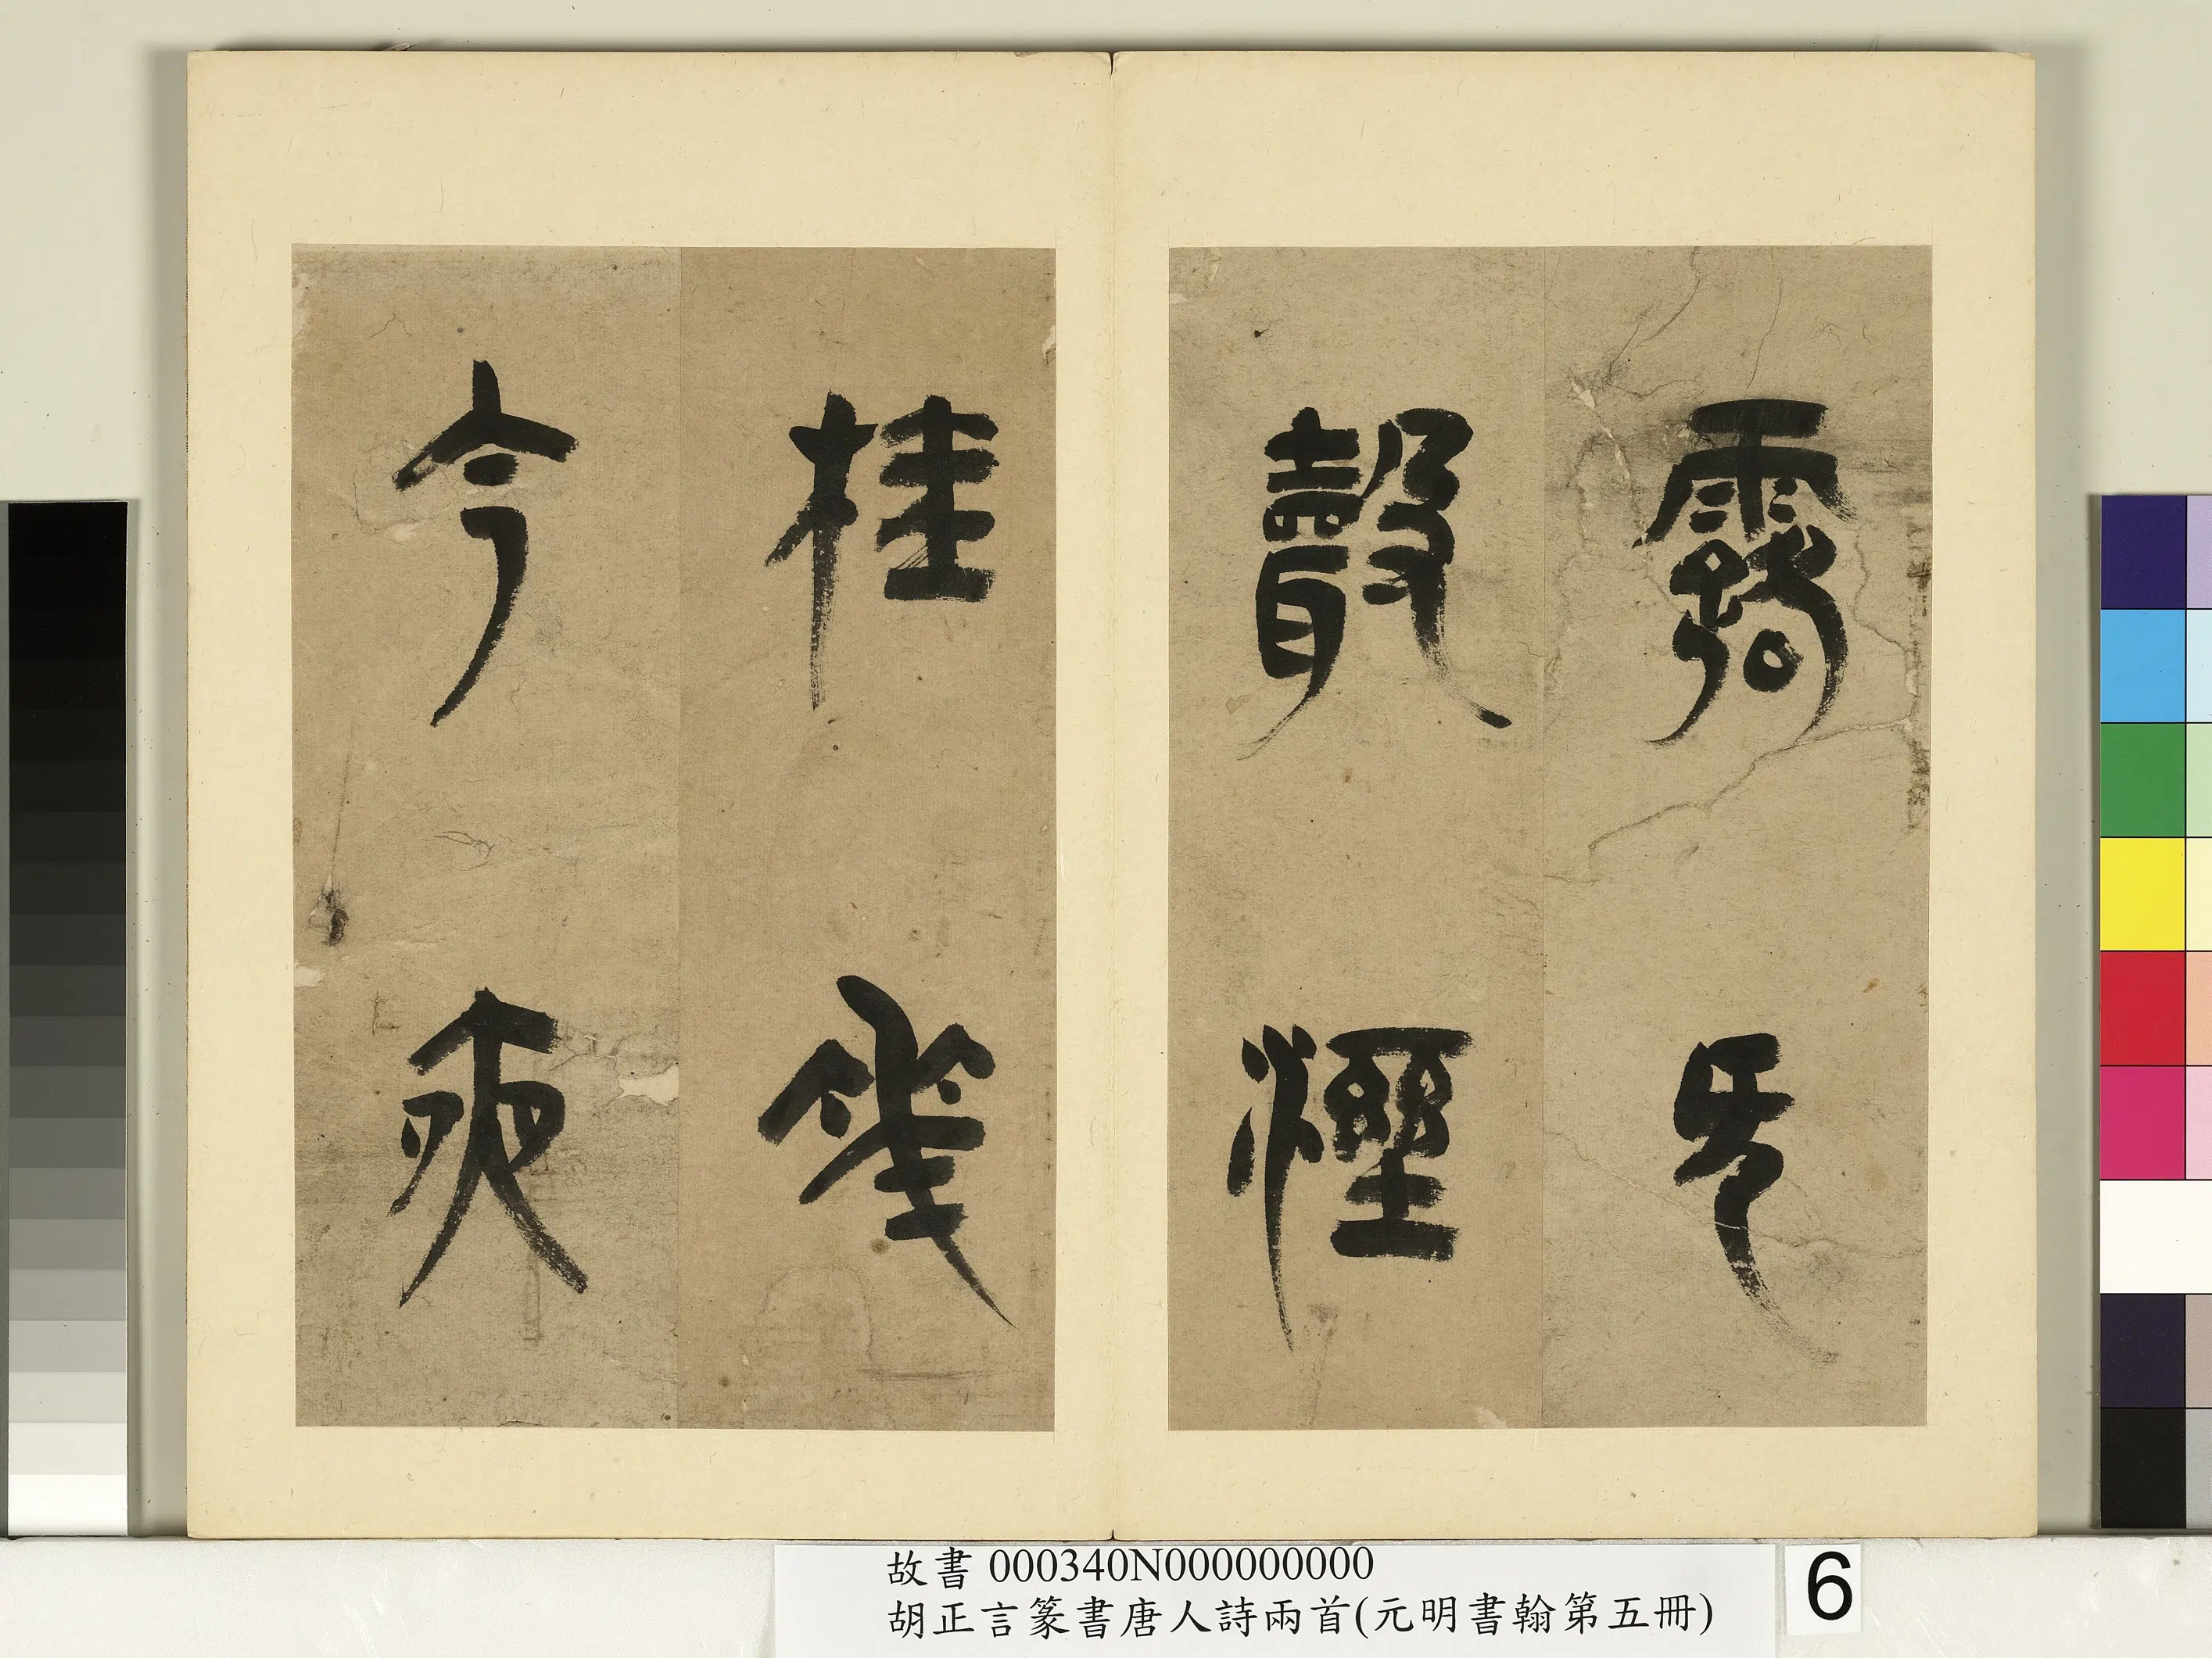 露无
聲溼
桂華
今夜
故書 000340N000000000
胡正言篆書唐人詩兩首(元明書翰第五冊)
6